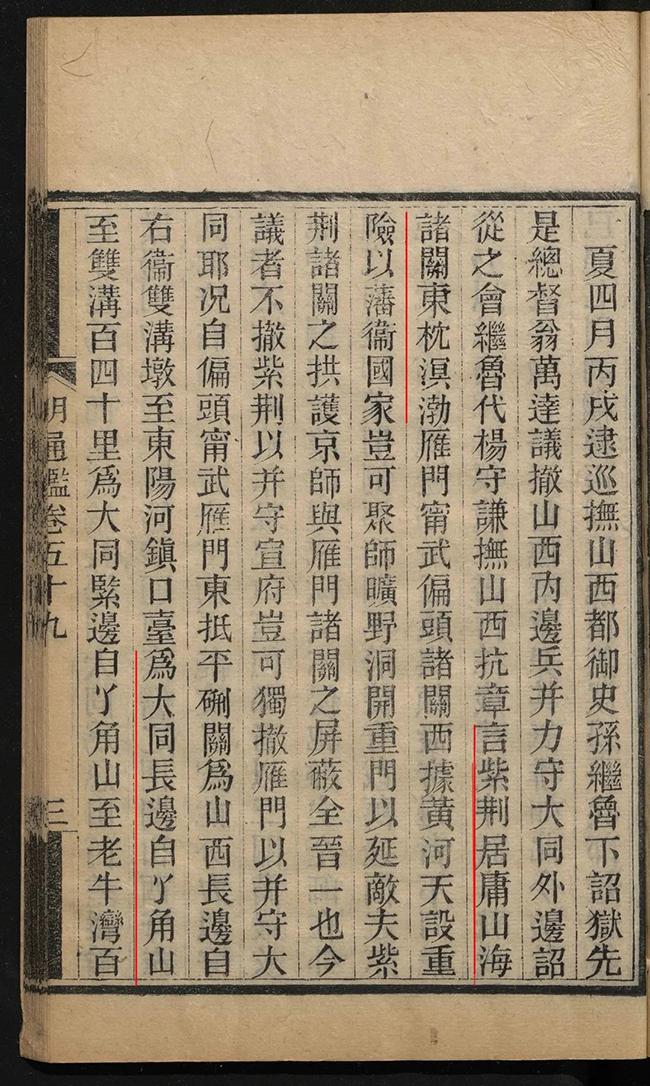 夏四月丙戌逮巡撫山西都御史孫繼魯下詔獄先
是總督翁萬達議撤山西內邊兵并力守大同外邊詔
從之會繼魯代楊守謙撫山西抗章言紫荆居庸山海
諸關東枕溟渤雁門甯武偏頭諸關西據黄河天設重
險以藩衞國家豈可聚師曠野洞開重門以延敵夫紫
荆諸關之拱護京師與雁門諸關之屏蔽全晉一也今
議者不撤紫荆以并守宣府豈可獨撤雁門以并守大
同耶况自偏頭甯武雁門東抵平硎關爲山西長邊自
右衞雙溝墩至東陽河鎭口臺爲大同長邊自丫角山
至雙溝百四十里爲大同緊邊自丫角山至老牛灣百
明通鑑卷五十九
三